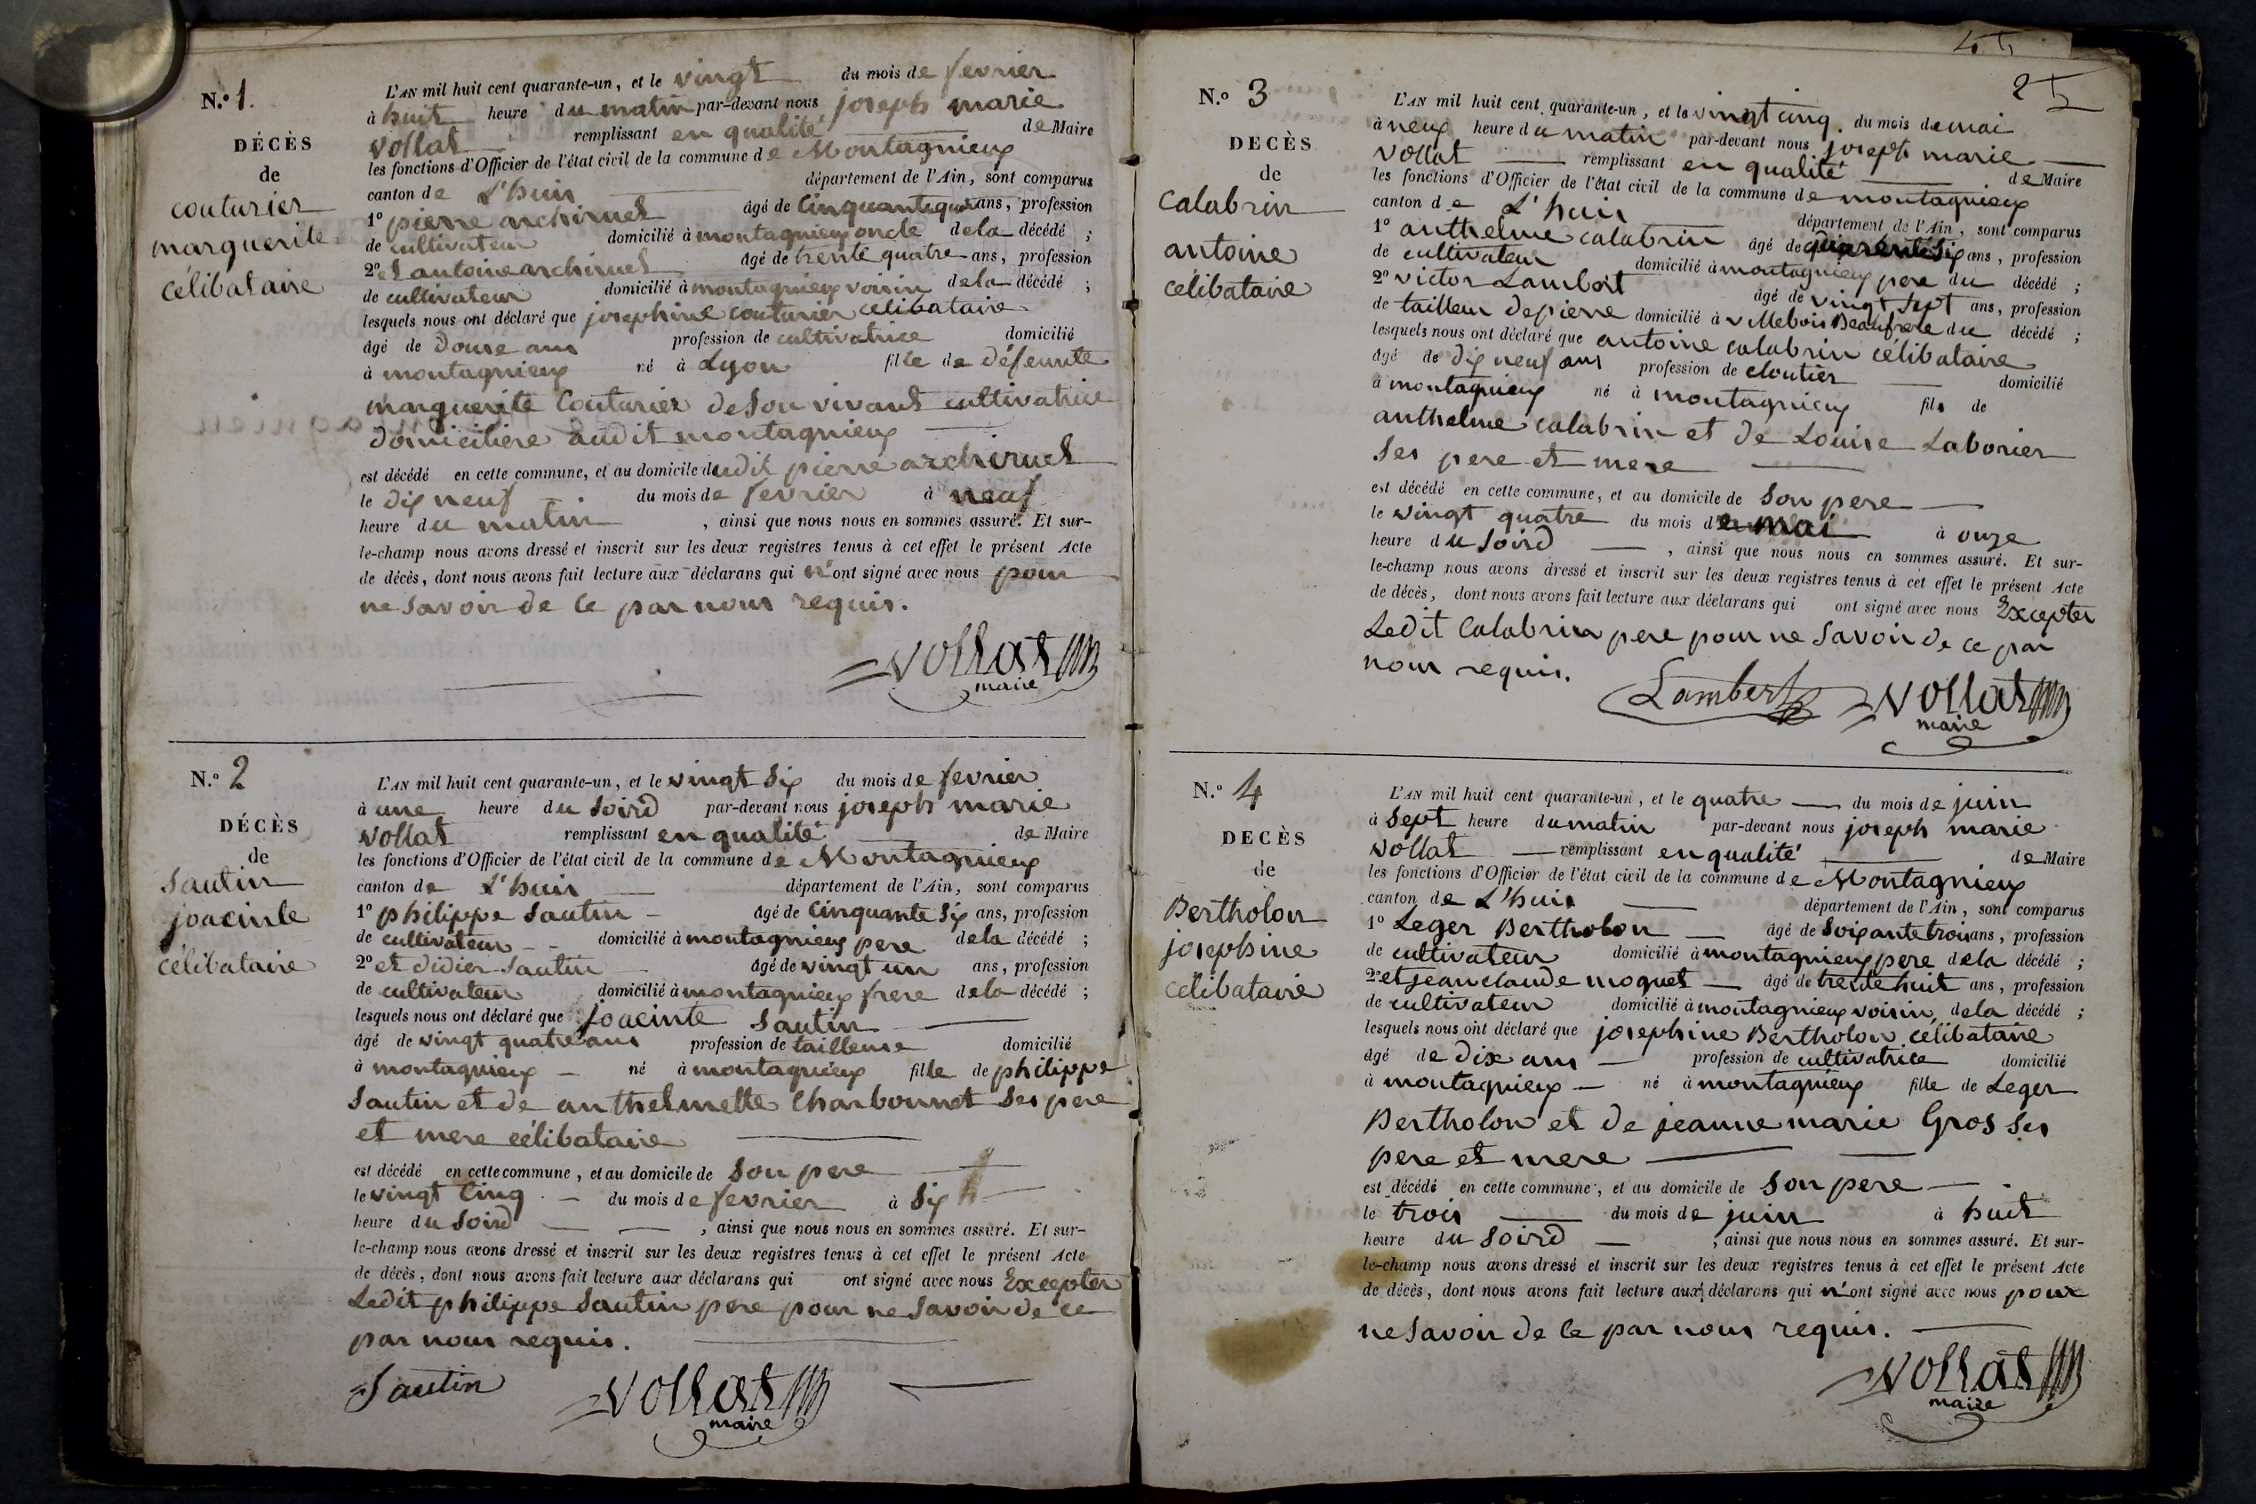 N.º 1.
DÉCÈS
de
couturier
marguerite
célibataire
L'AN mil huit cent quarante-un, et le vingt du mois de fevrier
à huit heure du matin par-devant nous joseph marie
vollat remplissant en qualité de Maire
les fonctions d'Officier de l'état civil de la commune de Montagnieux
canton de L'huis département de l'Ain, sont comparus
1º pierre archiruel âgé de Cinquante quatre ans, profession
de cultivateur domicilié à montagnieux oncle de la décédé ;
2º et antoine archiruel âgé de trente quatre ans, profession
de cultivateur domicilié à montagnieux voisin de la décédé ;
lesquels nous ont déclaré que josephine couturier célibataire
âgé de douse ans profession de cultivatrice domicilié
à montagnieux né à Lyon fille de défeunte
marguerite Couturier de son vivant cultivatrice
domicilière audit montagnieux
est décédé en cette commune, et au domicile dudit pierre archiruel
le dix neuf du mois de fevrier à neuf
heure du matin , ainsi que nous nous en sommes assuré. Et sur-
le-champ nous avons dressé et inscrit sur les deux registres tenus à cet effet le présent Acte
de décès, dont nous avons fait lecture aux déclarans qui n'ont signé avec nous pour
ne savoir de ce par nous requis.
vollat
maire
N.º 2
DÉCÈS
de
Sautin
joacinte
célibataire
L'AN mil huit cent quarante-un, et le vingt Six du mois de fevrier
à une heure du Soird par-devant nous joseph marie
vollat remplissant en qualité de Maire
les fonctions d'Officier de l'état civil de la commune de Montagnieux
canton de L'huis département de l'Ain, sont comparus
1º philippe Sautin âgé de Cinquante Six ans, profession
de cultivateur domicilié à montagnieux pere de la décédé ;
2º et didier Sautin âgé de vingt un ans, profession
de cultivateur domicilié à montagnieux frere de la décédé ;
lesquels nous ont déclaré que joacinte Sautin
âgé de vingt quatre ans profession de tailleuse domicilié
à montagnieux né à montagnieux fille de philippe
Sautin et de anthelmette Charbonnet Ses pere
et mere célibataire
est décédé en cette commune, et au domicile de Son pere
le vingt Cinq du mois de fevrier à Six
heure du Soird , ainsi que nous nous en sommes assuré. Et sur-
le-champ nous avons dressé et inscrit sur les deux registres tenus à cet effet le présent Acte
de décès, dont nous avons fait lecture aux déclarans qui ont signé avec nous Excepter
Ledit philippe Sautin pere pour ne Savoir de ce
par nous requis.
Sautin vollat
maire
25
N.º 3
DECÈS
de
Calabrin
antoine
célibataire
L'AN mil huit cent quarante-un, et le vingt cinq du mois de mai
à neuf heure du matin par-devant nous joseph marie
vollat remplissant en qualité de Maire
les fonctions d'Officier de l'état civil de la commune de montagnieux
canton de L'huis département de l'Ain, sont comparus
1º anthelme calabrin âgé de quarente Six ans, profession
de cultivateur domicilié à montagnieux pere du décédé ;
2º victor Lambert âgé de vingt Sept ans, profession
de tailleur de pierre domicilié à villebois Beaufrere du décédé ;
lesquels nous ont déclaré que antoine calabrin célibataire
âgé de dix neuf ans profession de cloutier domicilié
à montagnieux né à montagnieux fils de
anthelme calabrin et de Louise Laborier
Ses pere et mere
est décédé en cette commune, et au domicile de Son pere
le vingt quatre du mois de mai à onze
heure du Soird , ainsi que nous nous en sommes assuré. Et sur-
le-champ nous avons dressé et inscrit sur les deux registres tenus à cet effet le présent Acte
de décès, dont nous avons fait lecture aux déclarans qui ont signé avec nous Excepter
Ledit Calabrin pere pour ne Savoir de ce par
nous requis.
Lambert vollat
maire
N.º 4
DECÈS
de
Bertholon
josephine
célibataire
L'AN mil huit cent quarante-un, et le quatre du mois de juin
à Sept heure du matin par-devant nous joseph marie
vollat remplissant en qualité de Maire
les fonctions d'Officier de l'état civil de la commune de Montagnieux
canton de L'huis département de l'Ain, sont comparus
1º Leger Bertholon âgé de Soixante trois ans, profession
de cultivateur domicilié à montagnieux pere de la décédé ;
2º et jean claude moquet âgé de trente huit ans, profession
de cultivateur domicilié à montagnieux voisin de la décédé ;
lesquels nous ont déclaré que josephine Bertholon célibataire
âgé de dix ans profession de cultivatrice domicilié
à montagnieux né à montagnieux fille de Leger
Bertholon et de jeanne marie Gros Ses
pere et mere
est décédé en cette commune, et au domicile de Son pere
le trois du mois de juin à huit
heure du Soird , ainsi que nous nous en sommes assuré. Et sur-
le-champ nous avons dressé et inscrit sur les deux registres tenus à cet effet le présent Acte
de décès, dont nous avons fait lecture aux déclarans qui n'ont signé avec nous pour
ne Savoir de ce par nous requis.
vollat
maire